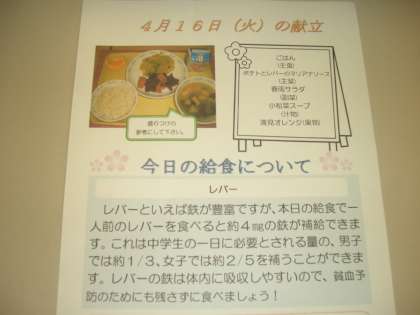 4月16日（火）の献立
ごはん
(主食)
ポテトとレバーのマリアナソース
(主菜)
春雨サラダ
(副菜)
小松菜スープ
(汁物)
清見オレンジ(果物)
盛りつけの
参考にして下さい。
今日の給食について
レバー
レバーといえば鉄が豊富ですが、本日の給食で一
人前のレバーを食べると約4㎎の鉄が補給できま
す。これは中学生の一日に必要とされる量の、男子
では約1/3、女子では約2/5を補うことができま
す。レバーの鉄は体内に吸収しやすいので、貧血予
防のためにも残さずに食べましょう！